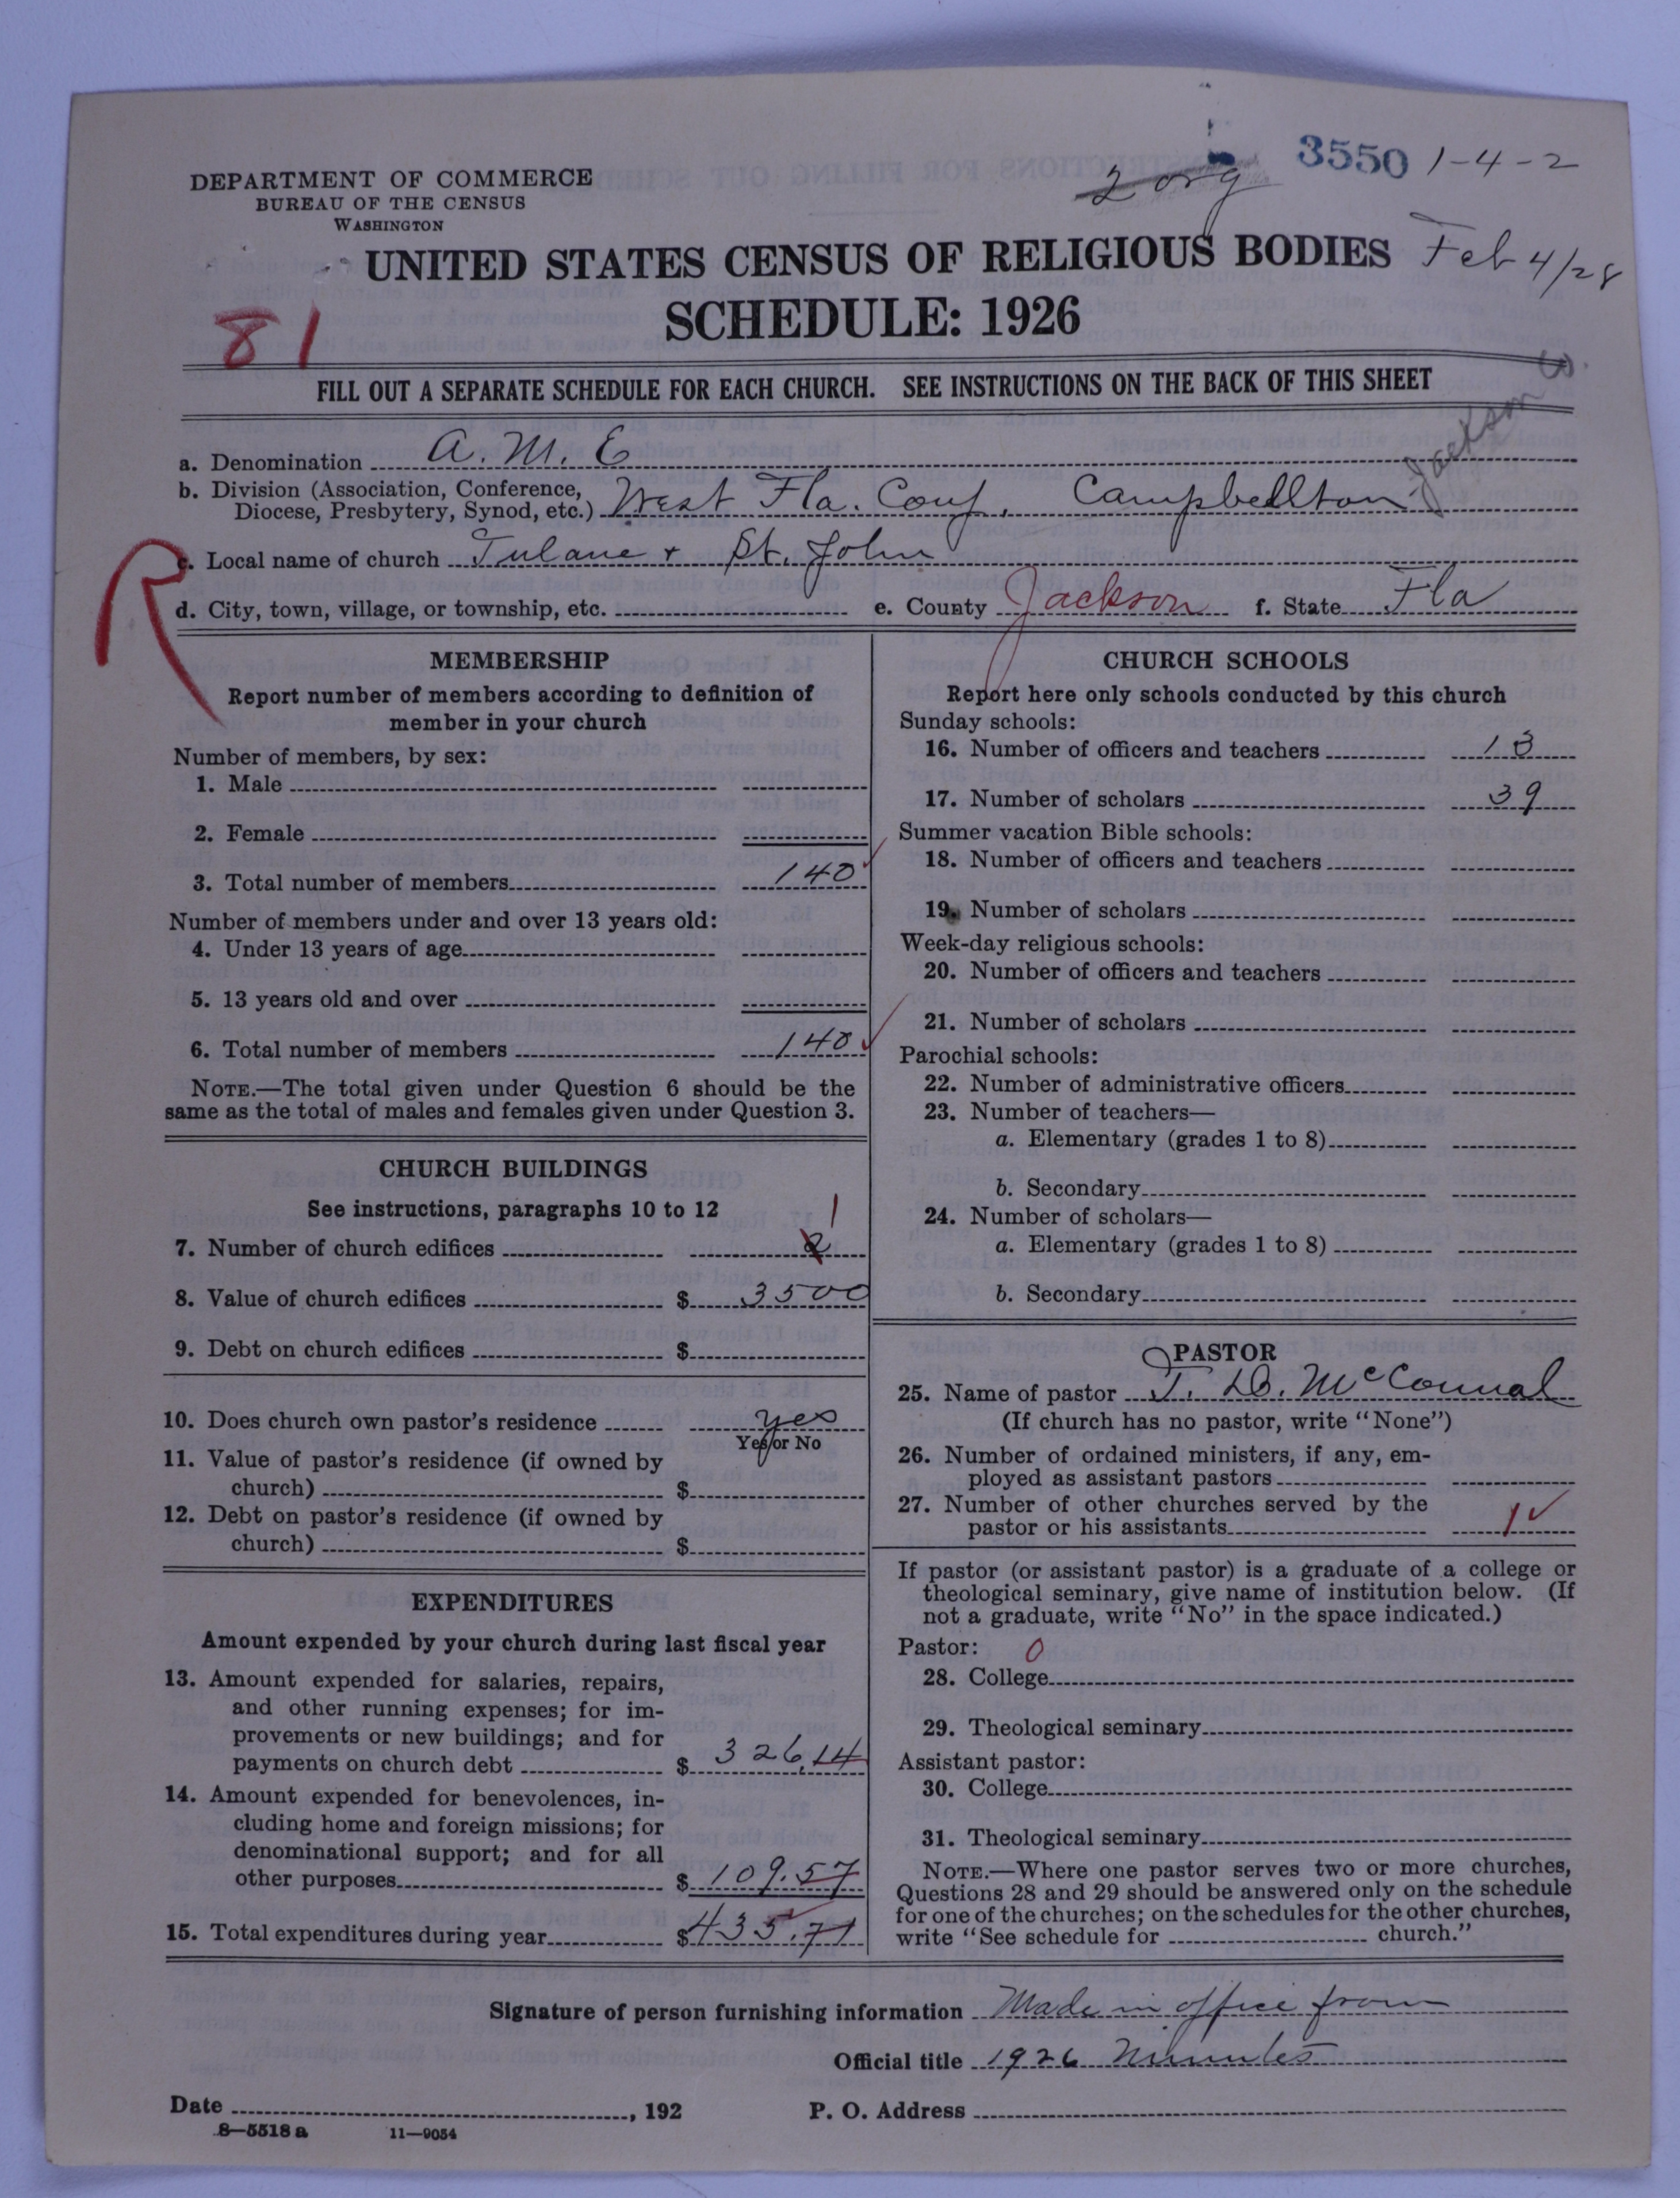 2 org 3550 1-4-2
DEPARTMENT OF COMMERCE
BUREAU OF THE CENSUS
WASHINGTON
UNITED STATES CENSUS OF RELIGIOUS BODIES Feb 4/28
SCHEDULE: 1926
81
FILL OUT A SEPARATE SCHEDULE FOR EACH CHURCH. SEE INSTRUCTIONS ON THE BACK OF THIS SHEET
a. Denomination A. M. E
b. Division (Association, Conference,
Diocese, Presbytery, Synod, etc.) West Fla. Conf, Campbellton Jackson Co.
R
c. Local name of church Tulane + St. John
d. City, town, village, or township, etc. e. County Jackson f. State Fla
MEMBERSHIP
Report number of members according to definition of
member in your church
Number of members, by sex:
1. Male
2. Female
3. Total number of members 140
Number of members under and over 13 years old:
4. Under 13 years of age
5. 13 years old and over
6. Total number of members 140
NOTE.—The total given under Question 6 should be the
same as the total of males and females given under Question 3.
CHURCH BUILDINGS
See instructions, paragraphs 10 to 12
7. Number of church edifices 2 1
8. Value of church edifices $ 3500
9. Debt on church edifices $
10. Does church own pastor's residence yes
Yes or No
11. Value of pastor's residence (if owned by
church) $
12. Debt on pastor's residence (if owned by
church) $
EXPENDITURES
Amount expended by your church during last fiscal year
13. Amount expended for salaries, repairs,
and other running expenses; for im-
provements or new buildings; and for
payments on church debt $ 326.14
14. Amount expended for benevolences, in-
cluding home and foreign missions; for
denominational support; and for all
other purposes $ 109.57
15. Total expenditures during year $ 435.71
CHURCH SCHOOLS
Report here only schools conducted by this church
Sunday schools:
16. Number of officers and teachers 13
17. Number of scholars 39
Summer vacation Bible schools:
18. Number of officers and teachers
19. Number of scholars
Week-day religious schools:
20. Number of officers and teachers
21. Number of scholars
Parochial schools:
22. Number of administrative officers
23. Number of teachers—
a. Elementary (grades 1 to 8)
b. Secondary
24. Number of scholars—
a. Elementary (grades 1 to 8)
b. Secondary
PASTOR
25. Name of pastor J. D. McConnal
(If church has no pastor, write "None")
26. Number of ordained ministers, if any, em-
ployed as assistant pastors
27. Number of other churches served by the
pastor or his assistants 1
If pastor (or assistant pastor) is a graduate of a college or
theological seminary, give name of institution below. (If
not a graduate, write "No" in the space indicated.)
Pastor: 0
28. College
29. Theological seminary
Assistant pastor:
30. College
31. Theological seminary
NOTE.—Where one pastor serves two or more churches,
Questions 28 and 29 should be answered only on the schedule
for one of the churches; on the schedules for the other churches,
write "See schedule for church."
Signature of person furnishing information Made in office from
Official title 1926 Minutes
Date , 192 P. O. Address
8—5518a 11—9054